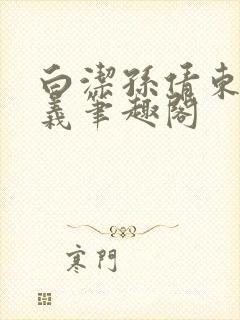 白潔孫倩東
義筆趣閣
寒門